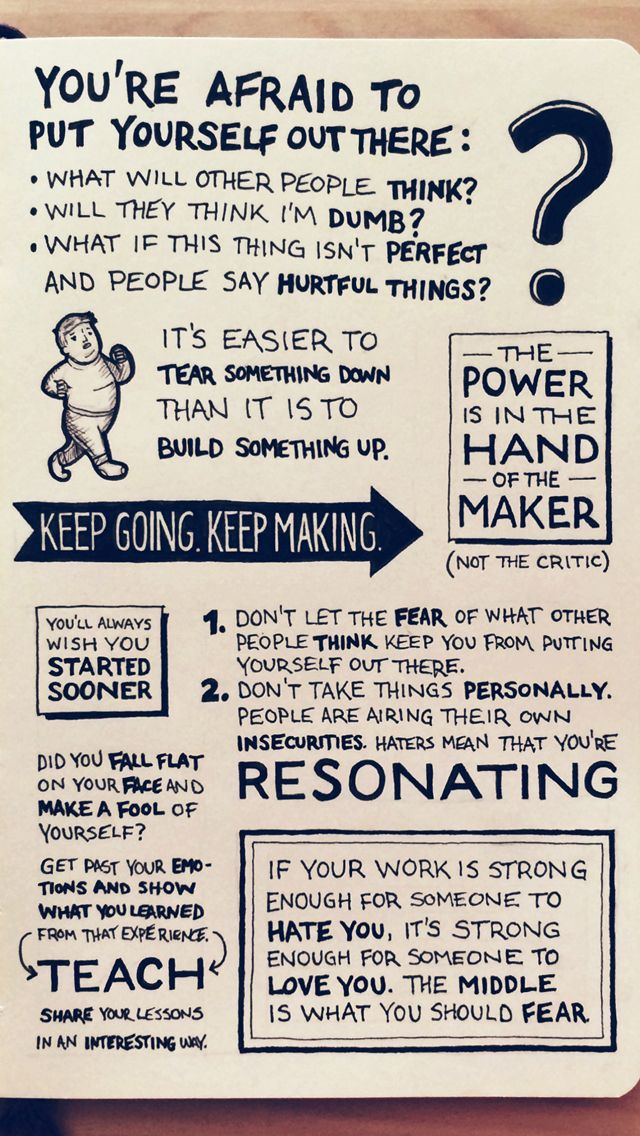 YOU'RE AFRAID TO
PUT YOURSELF OUT THERE:
• WHAT WILL OTHER PEOPLE THINK?
• WILL THEY THINK I'M DUMB?
• WHAT IF THIS THING ISN'T PERFECT
AND PEOPLE SAY HURTFUL THINGS?
?
IT'S EASIER TO
TEAR SOMETHING DOWN
THAN IT IS TO
BUILD SOMETHING UP.
— THE —
POWER
IS IN THE
HAND
— OF THE —
MAKER
(NOT THE CRITIC)
KEEP GOING. KEEP MAKING.
YOU'LL ALWAYS
WISH YOU
STARTED
SOONER
1. DON'T LET THE FEAR OF WHAT OTHER
PEOPLE THINK KEEP YOU FROM PUTTING
YOURSELF OUT THERE.
2. DON'T TAKE THINGS PERSONALLY.
PEOPLE ARE AIRING THEIR OWN
INSECURITIES. HATERS MEAN THAT YOU'RE
RESONATING
DID YOU FALL FLAT
ON YOUR FACE AND
MAKE A FOOL OF
YOURSELF?
GET PAST YOUR EMO-
TIONS AND SHOW
WHAT YOU LEARNED
FROM THAT EXPERIENCE.
TEACH
SHARE YOUR LESSONS
IN AN INTERESTING WAY.
IF YOUR WORK IS STRONG
ENOUGH FOR SOMEONE TO
HATE YOU, IT'S STRONG
ENOUGH FOR SOMEONE TO
LOVE YOU. THE MIDDLE
IS WHAT YOU SHOULD FEAR.